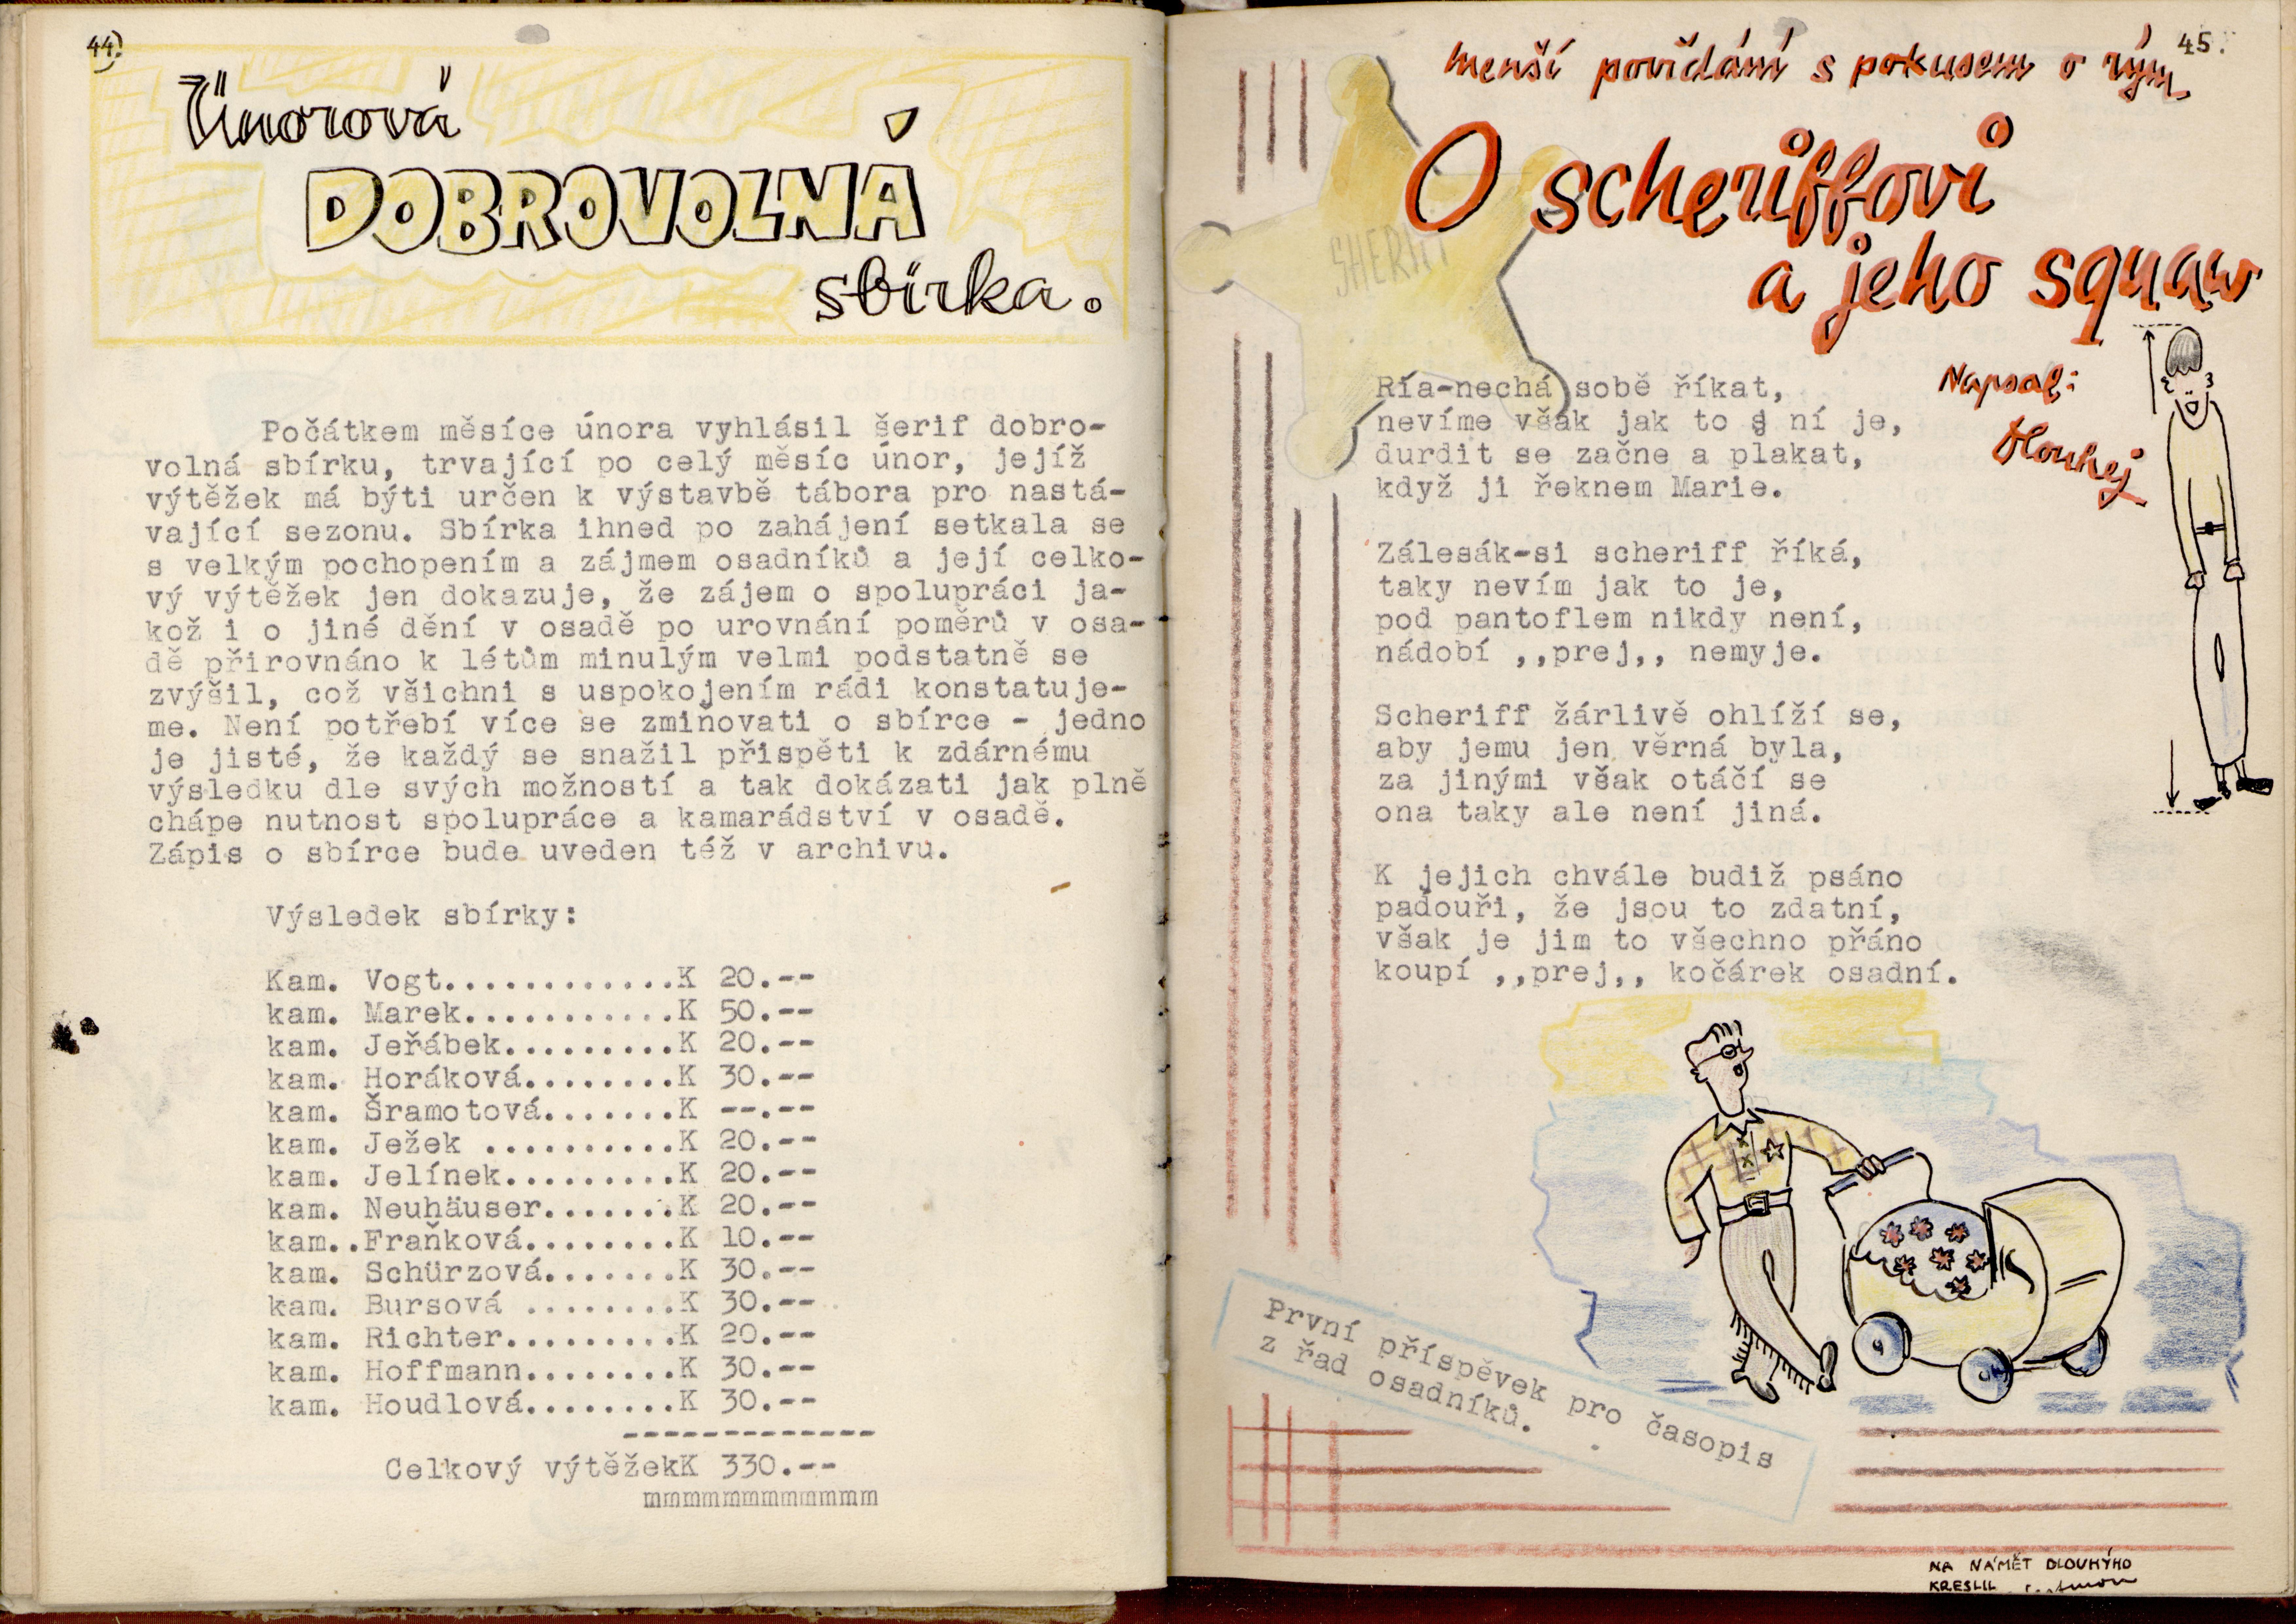 44)
Únorová
DOBROVOLNÁ
sbírka.
Počátkem měsíce února vyhlásil šerif dobro-
volná sbírku, trvající po celý měsíc únor, jejíž
výtěžek má býti určen k výstavbě tábora pro nastá-
vající sezonu. Sbírka ihned po zahájení setkala se
s velkým pochopením a zájmem osadníků a její celko-
vý výtěžek jen dokazuje, že zájem o spolupráci ja-
kož i o jiné dění v osadě po urovnání poměrů v osa-
dě přirovnáno k létům minulým velmi podstatně se
zvýšil, což všichni s uspokojením rádi konstatuje-
me. Není potřebí více se zmiňovati o sbírce - jedno
je jisté, že každý se snažil přispěti k zdárnému
výsledku dle svých možností a tak dokázati jak plně
chápe nutnost spolupráce a kamarádství v osadě.
Zápis o sbírce bude uveden též v archivu.
Výsledek sbírky:
Kam. Vogt............K 20.--
kam. Marek...........K 50.--
kam. Jeřábek.........K 20.--
kam. Horáková........K 30.--
kam. Šramotová.......K --.--
kam. Ježek ..........K 20.--
kam. Jelínek.........K 20.--
kam. Neuhäuser.......K 20.--
kam..Fraňková........K 10.--
kam. Schürzová.......K 30.--
kam. Bursová ........K 30.--
kam. Richter.........K 20.--
kam. Hoffmann........K 30.--
kam. Houdlová........K 30.--
-------------
Celkový výtěžekK 330.--
mmmmmmmmmmmm
45.
menší povídání s pokusem o rým
O scheriffovi
a jeho squaw
SHERIFF
Napsal:
Dlouhej
Ría-nechá sobě říkat,
nevíme však jak to s ní je,
durdit se začne a plakat,
když ji řeknem Marie.
Zálesák-si scheriff říká,
taky nevím jak to je,
pod pantoflem nikdy není,
nádobí ,,prej,, nemyje.
Scheriff žárlivě ohlíží se,
aby jemu jen věrná byla,
za jinými však otáčí se
ona taky ale není jiná.
K jejich chvále budiž psáno
padouři, že jsou to zdatní,
však je jim to všechno přáno
koupí ,,prej,, kočárek osadní.
První příspěvek pro časopis
z řad osadníků.
NA NÁMĚT DLOUHÝHO
KRESLIL